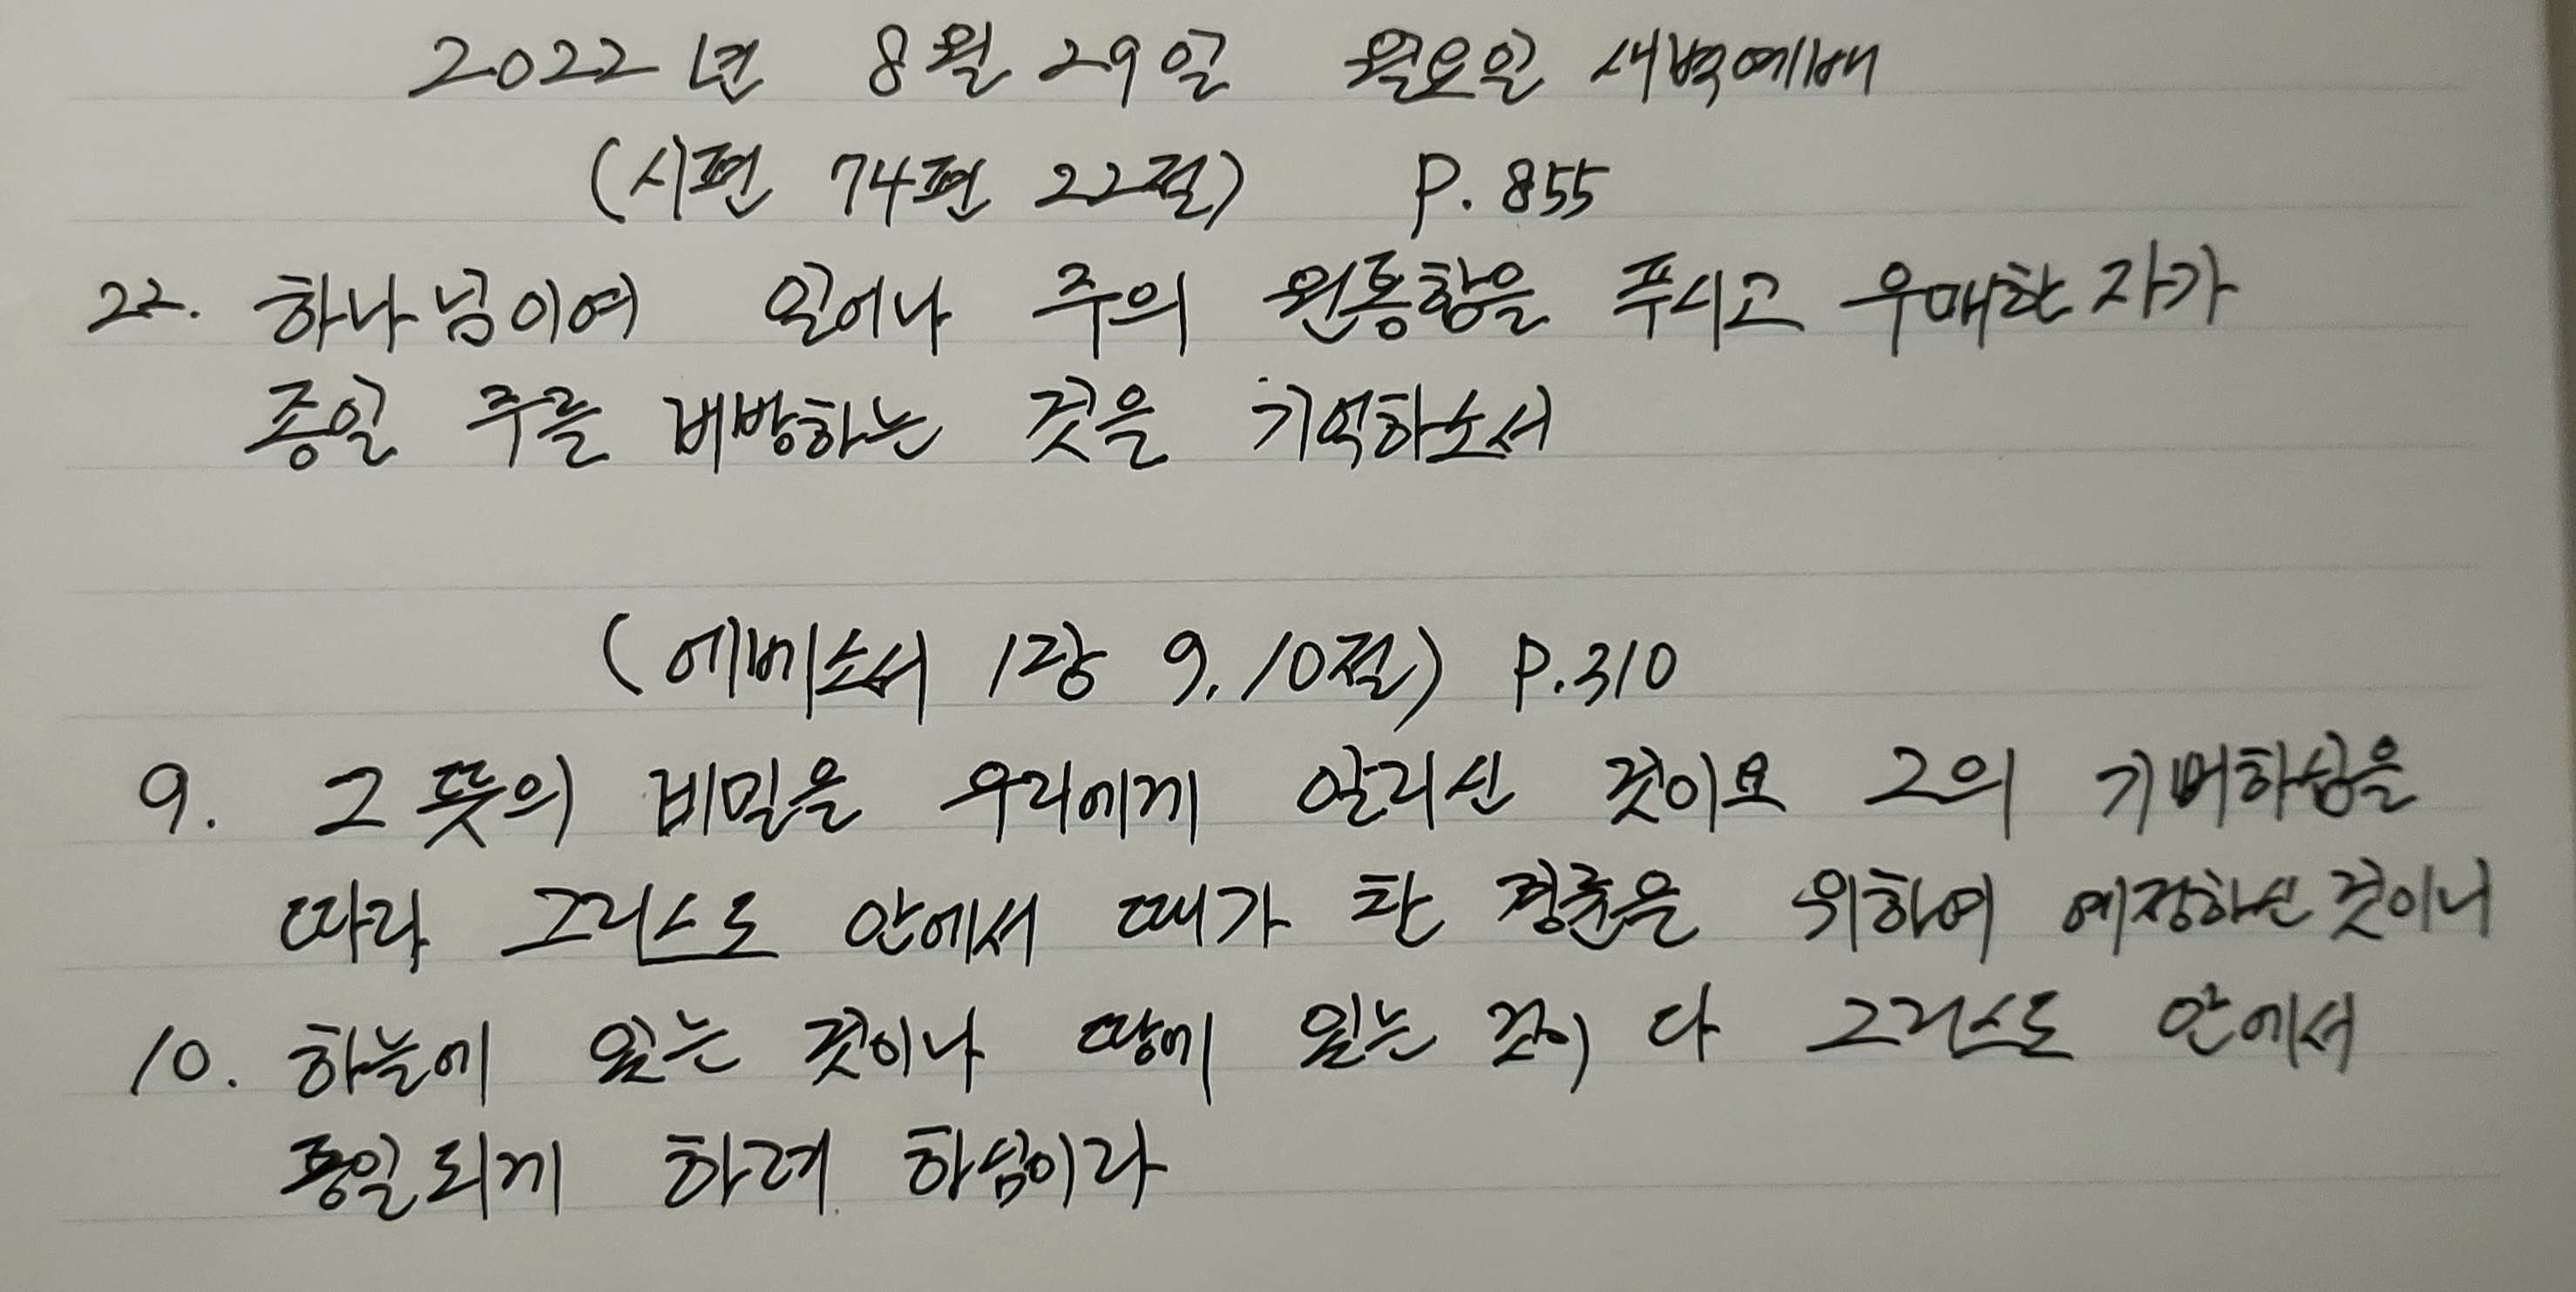 2022년 8월 29일 월요일 새벽예배
(시편 74편 22절) P. 855
22. 하나님이여 일어나 주의 원통함을 푸시고 우매한 자가
종일 주를 비방하는 것을 기억하소서
(에베소서 1장 9, 10절) P.310
9. 그 뜻의 비밀을 우리에게 알리신 것이요 그의 기뻐하심을
따라 그리스도 안에서 때가 찬 경륜을 위하여 예정하신 것이니
10. 하늘에 있는 것이나 땅에 있는 것이 다 그리스도 안에서
통일되게 하려 하심이라